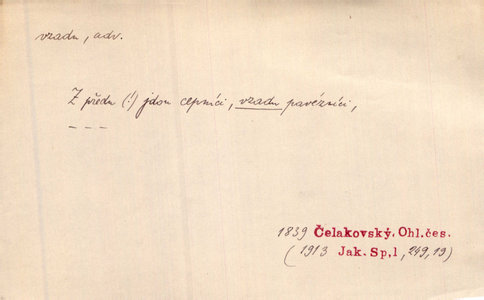 vzadu, adv.
Z předu (!) jdou cepníci, vzadu pavézníci,
– – –
1839 Čelakovský, Ohl.čes.
(1913 Jak. Sp,1, 249,19)